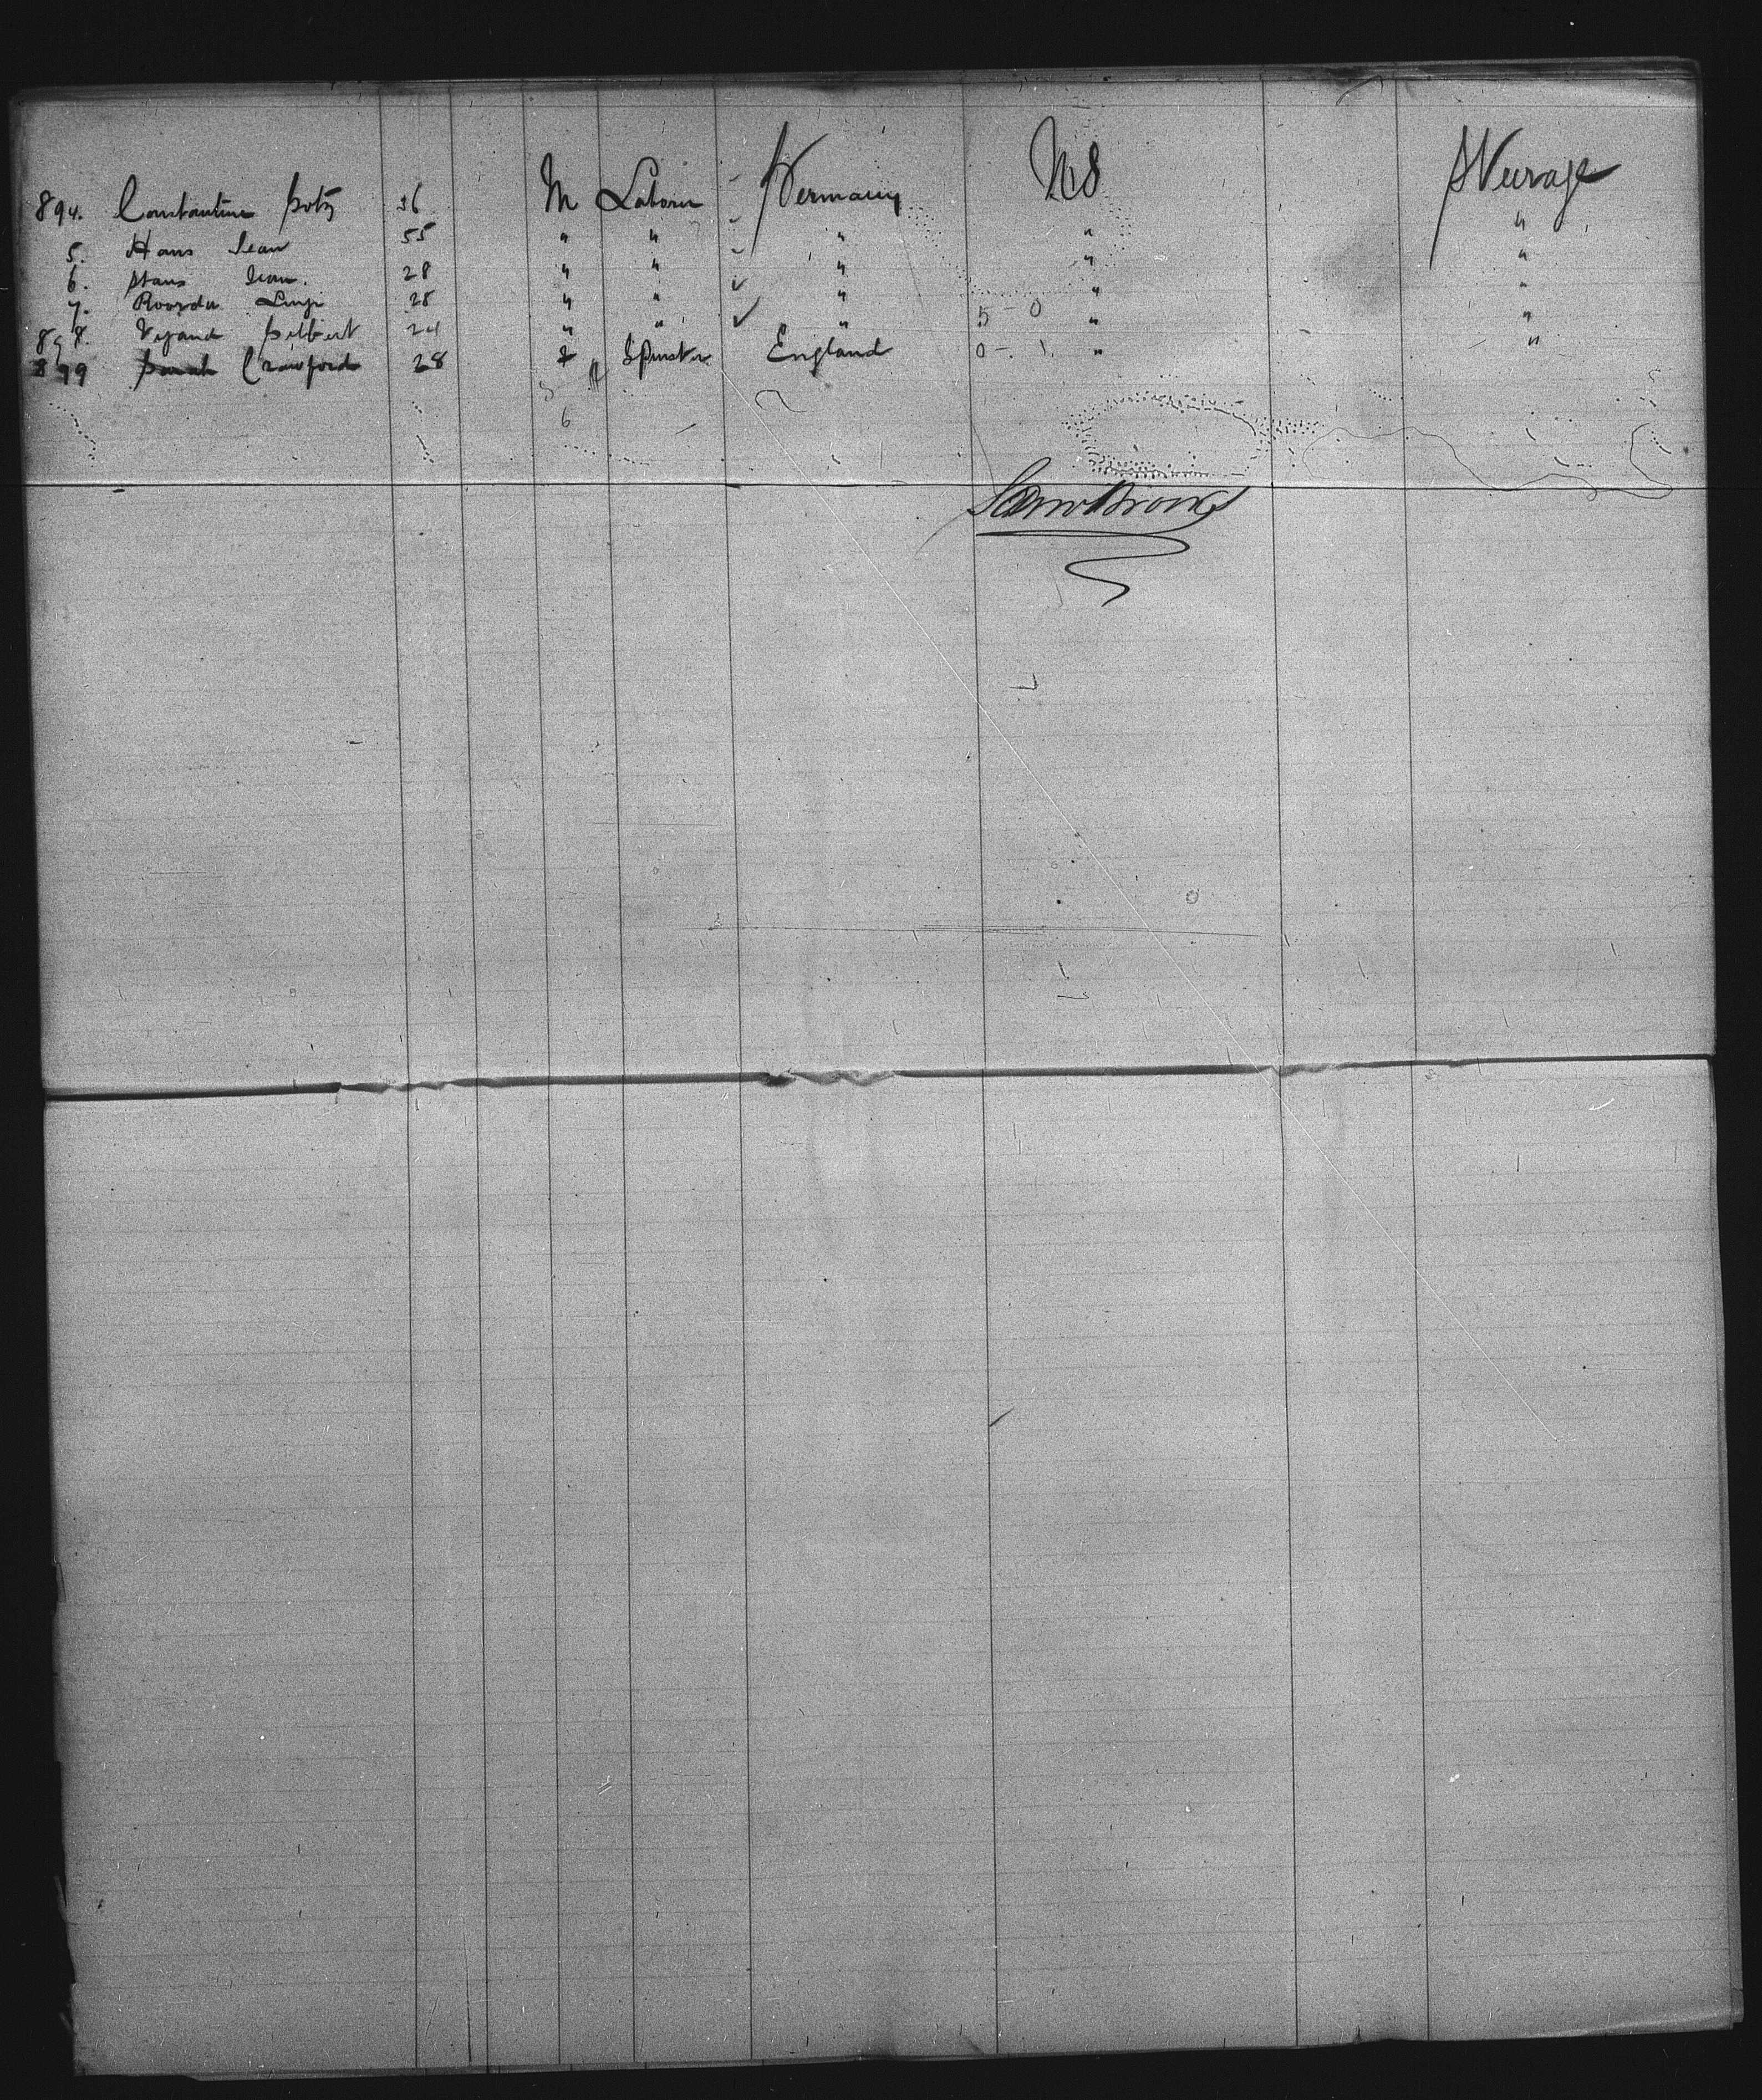 894. Constantine 26 M Laborer Germany US Steerage
5. Hans Jean 55 " " " " "
6. Hans Jean. 28 " " " " "
7. Roorda 28 " " " " "
898. 24 " " " 5-0 " "
899 Sarah Crawford 28 Spinster England 0-1. " "
6